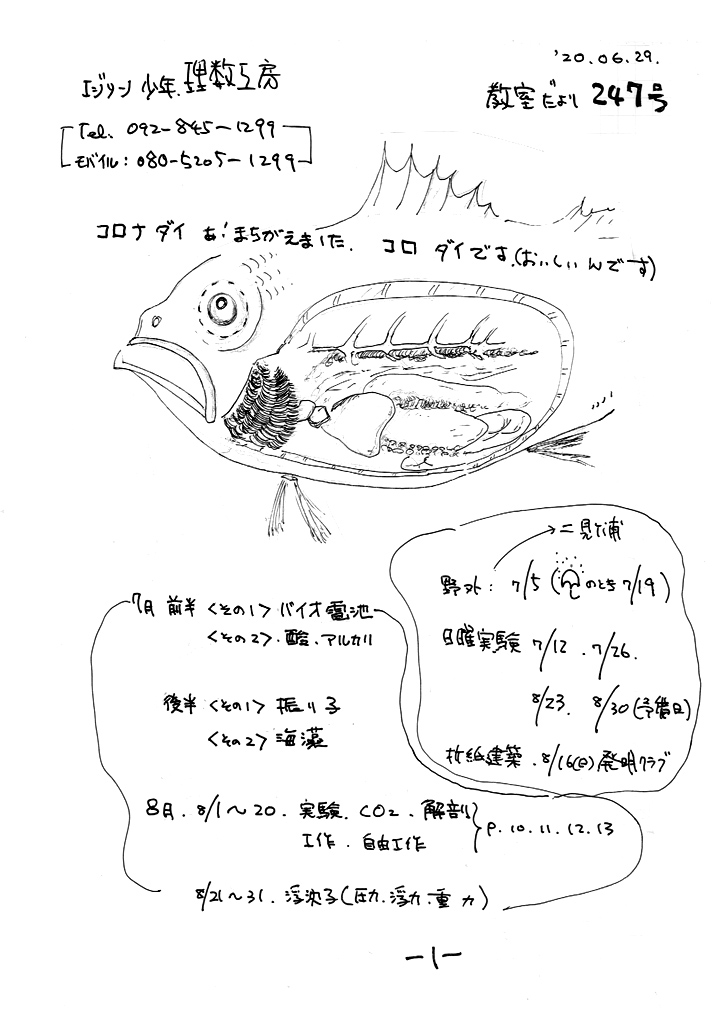 '20.06.29.
エジソン少年.理数工房
教室だより 247号
Tel. 092-845-1299
モバイル:080-5205-1299
コロナ ダイ あ!まちがえました. コロ ダイです.(おいしいんです)
→二見ヶ浦
野外: 7/5 (のとき 7/19)
日曜実験 7/12 . 7/26.
8/23. 8/30(予備日)
折紙建築 . 8/16(日)発明クラブ
7月 前半 <その1> バイオ電池
<その2>. 酸.アルカリ
後半 <その1> 振り子
<その2> 海藻
8月. 8/1~20. 実験. CO2 . 解剖
工作 . 自由工作
P.10.11.12.13
8/21~31. 浮沈子(圧力.浮力.重力)
-1-